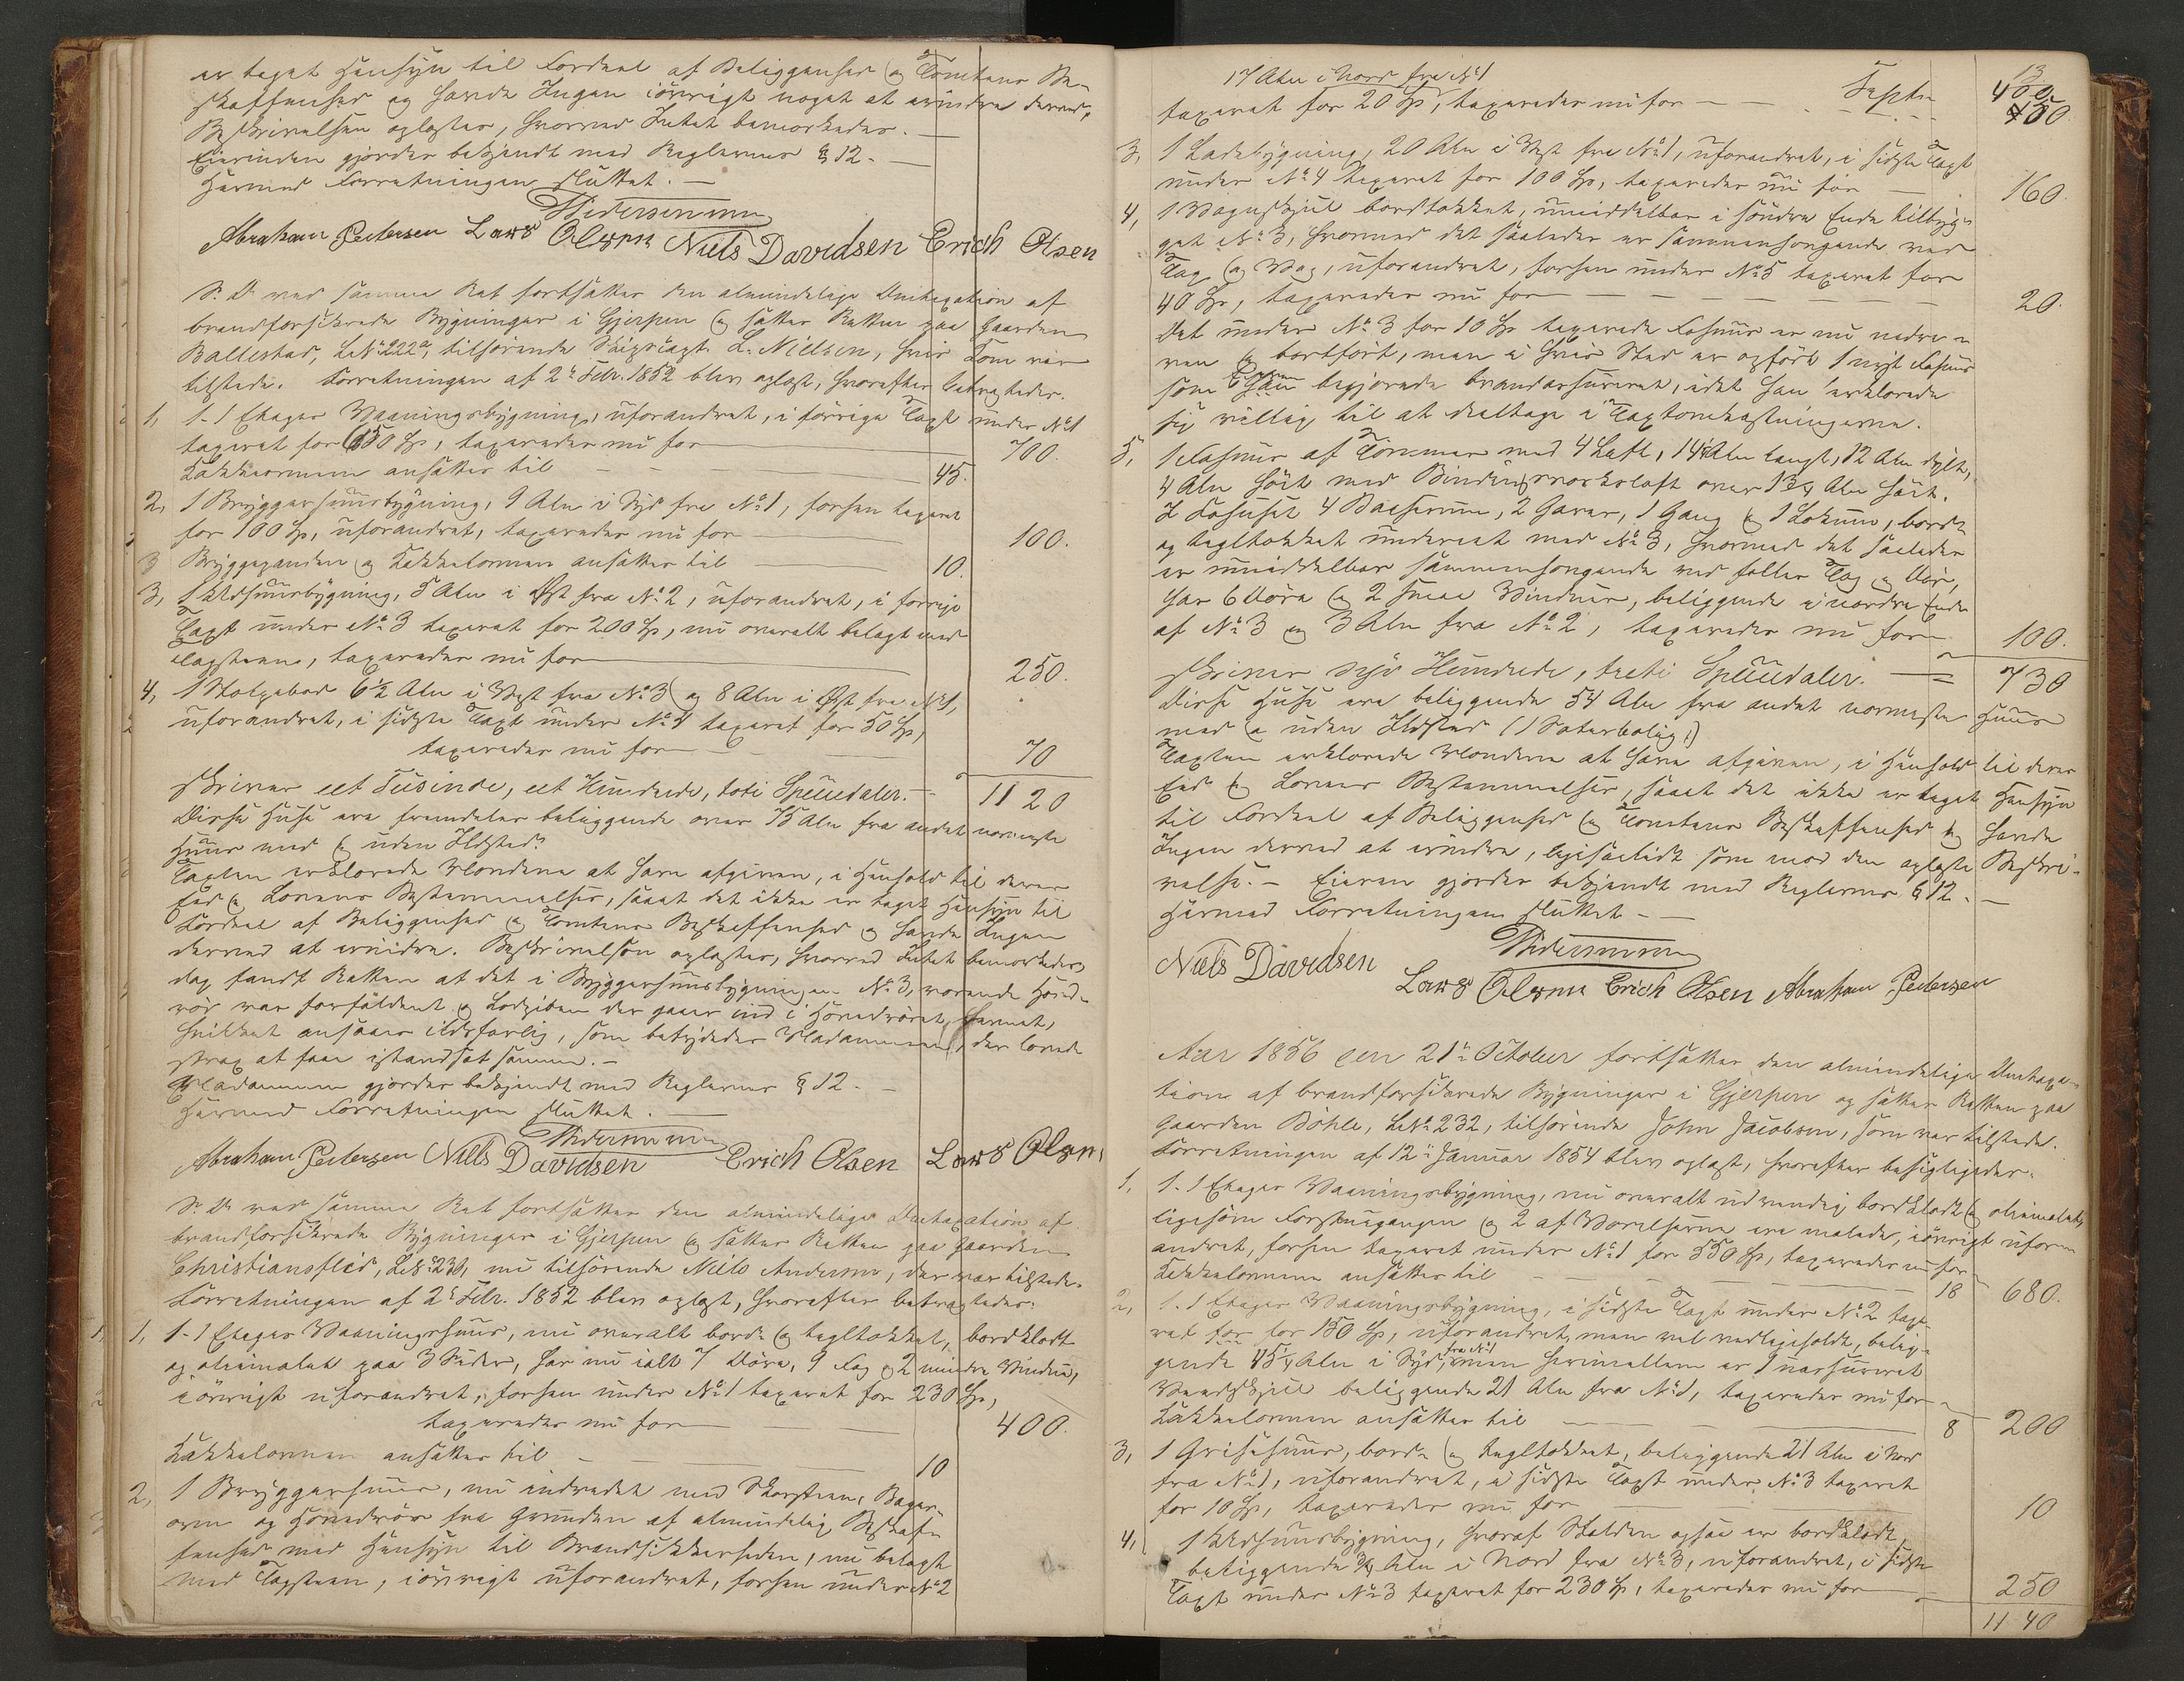 er taget Hensyn til Fordeel af Beliggenhed og Tomtens Be-
skaffenhed og havde Ingen iövrigt noget at erindre derved.
Beskrivelsen oplæstes, hvorved Intet bemærkedes. —
Eierinden gjordes bekjendt med Reglernes § 12. —
Hermed Forretningen sluttet. —
Abraham Pedersen Lars Olsen Niels Davidsen Erich Olsen
S. D. med samme Ret fortsættes den almindelige Omtaxation af
brandforsikrede Bygninger i Gjerpen og sattes Retten paa Gaarden
Ballestad, LNo 222a, tilhörende L. Nielsen, hvis Kone var
tilstede. Forretningen af 2de Febr. 1852 blev oplæst, hvorefter betragtedes.
1, 1. 1 Etages Vaaningsbygning, uforandret, i forrige Taxt under No 1
taxeret for 650 Sp, taxeredes nu for — 700.
Kakkelovnene ansættes til — 45.
2, 1 Bryggerhuusbygning, 9 Alen i Syd fra No 1, forhen taxeret
for 100 Sp, uforandret, taxeredes nu for — 100.
3 Bryggepanden og Kakkelovnen ansættes til — 10.
3, 1 Udhuusbygning, 5 Alen i Öst fra No 2, uforandret, i forrige
Taxt under No 3 taxeret for 200 Sp, nu overalt belagt med
Tagsteen, taxeredes nu for — 250.
4, 1 Stolpebod 6½ Alen i Vest fra No 3 og 8 Alen i Öst fra No 1,
uforandret, i sidste Taxt under No 4 taxeret for 50 Sp,
taxeredes nu for — 70
skriver eet Tusinde, eet Hundrede, toti Speciedaler. — 1120
Disse Huse ere fremdeles beliggende over 75 Alen fra andet nærmeste
Huus med og uden Ildsted.
Taxten erklærede Mændene at have afgiven, i Henhold til deres
Eed og Lovens Bestemmelser, saaat det ikke er taget Hensyn til
Fordeel af Beliggenhed og Tomtens Beskaffenhed og havde Ingen
derved at erindre. Beskrivelsen oplæstes, hvorved Intet bemærkedes,
dog fandt Retten at det i Bryggerhuusbygningen No 3, værende Hoved-
rör var forfaldent og
hvilket ansaaes ildsfarlig, som betydedes Madammen, der lovede
strax at faae istandsat samme. —
Madammen gjordes bekjendt med Reglernes § 12. —
Hermed Forretningen sluttet. —
Abraham Pedersen Niels Davidsen Erich Olsen Lars Olsen
S. D. med samme Ret fortsættes den almindelige Omtaxation af
brandforsikrede Bygninger i Gjerpen og sattes Retten paa Gaarden
Christiansflid, LNo 231, nu tilhörende Niels Andersen, der var tilstede.
Forretningen af 2de Febr. 1852 blev oplæst, hvorefter betragtedes:
1, 1. 1 Etages Vaaningshuus, nu overalt bord- og tegltækket, bordklædt
og oliemalet paa 3 Sider, har nu ialt 7 Döre, 9 Fag og 2 mindre Vinduer,
iövrigt uforandret, forhen under No 1 taxeret for 230 Sp,
taxeredes nu for — 400.
Kakkelovnen ansættes til — 10
2, 1 Bryggerhuus, nu indredet med Skorsteen, Bager-
ovn og Hovedrör fra Grunden af almindelig Beskaf-
fenhed med Hensyn til Brandsikkerheden, nu belagt
med Tagsteen, iövrigt uforandret, forhen under No 2
13.
17 Alen i Nord fra No 1
taxeret for 20 Sp, taxeredes nu for — 50.
3, 1 Ladebygning, 20 Alen i Vest fra No 1, uforandret, i sidste Taxt
under No 4 taxeret for 100 Sp, taxeredes nu for — 160.
4, 1 Vognskjul bordtækket, umiddelbar i söndre Ende tilbyg-
get No 3, hvormed det saaledes er sammenhængende ved
Tag og Væg, uforandret, forhen under No 5 taxeret for
40 Sp, taxeredes nu for — 20.
Det under No 3 for 10 Sp taxerede Fæhuus er nu nedre-
ven og bortfört, men i hvis Sted er opfört 1 nyt Fæhuus
som Eieren begjærede brandassureret, idet han erklærede
sig villig til at deeltage i Taxtomkostningerne.
5, 1 Fæhuus af Tömmer med 4 Laft, 14¼ Alen langt, 12 Alen dybt,
4 Alen höit med Bindingsværksloft over 1¾ Alen höit.
I Fæhuset 4 Baaserum, 2 Farer, 1 Gang og 1 Lokum, bord-
og tegltækket undereet med No 3, hvormed det saaledes
er umiddelbar sammenhængende ved fælles Tag og Dör,
har 6 Döre og 2 smaa Vinduer, beliggende i nordre Ende
af No 3 og 3 Alen fra No 2, taxeredes nu for — 100.
skriver syv Hundrede, treti Speciedaler. — 730
Disse Huse ere beliggende 54 Alen fra andet nærmeste Huus
med og uden Ildsted
Taxten erklærede Mændene at have afgiven, i Henhold til deres
Eed og Lovens Bestemmelser, saaat det ikke er taget Hensyn
til Fordeel af Beliggenhed og Tomtens Beskaffenhed og havde
Ingen derved at erindre, ligesaalidt som mod den oplæste Beskri-
velse. — Eieren gjordes bekjendt med Reglernes § 12. —
Hermed Forretningen sluttet. —
Niels Davidsen
Lars Olsen Erich Olsen Abraham Pedersen
Aar 1856 den 21de October fortsattes den almindelige Omtaxa-
tion af brandforsikrede Bygninger i Gjerpen og sattes Retten paa
Gaarden Böhle, LNo 232, tilhörende John Jacobsen, som var tilstede.
Forretningen af 12te Januar 1854 blev oplæst, hvorefter besigtigedes:
1, 1. 1 Etages Vaaningsbygning, nu overalt udvendig bordklædt og oliemalet,
ligesom Forstuegangen og 2 af Værelserne ere malede, iövrigt ufor-
andret, forhen taxeret under No 1 for 550 Sp, taxeredes nu for — 680.
Kakkelovnene ansættes til — 18
2, 1. 1 Etages Vaaningsbygning, i sidste Taxt under No 2 taxe-
ret for for 150 Sp, uforandret, men vel vedligeholdt, belig-
gende 45¼ Alen i Syd fra No 1, men herimellem er 1 uassureret
Vedskjul beliggende 21 Alen fra No 1, taxeredes nu for — 200
Kakkelovnen ansættes til — 8
3, 1 Grisehuus, bord- og tegltækket, beliggende 21 Alen i Nord
fra No 1, uforandret, i sidste Taxt under No 3 taxeret
for 10 Sp, taxeredes nu for — 10
4, 1 Udhuusbygning, hvoraf Stalden ogsaa er bordklædt,
beliggende ¾ Alen i Nord fra No 3, uforandret, i sidste
Taxt under No 3 taxeret for 230 Sp, taxeredes nu for — 250
1140